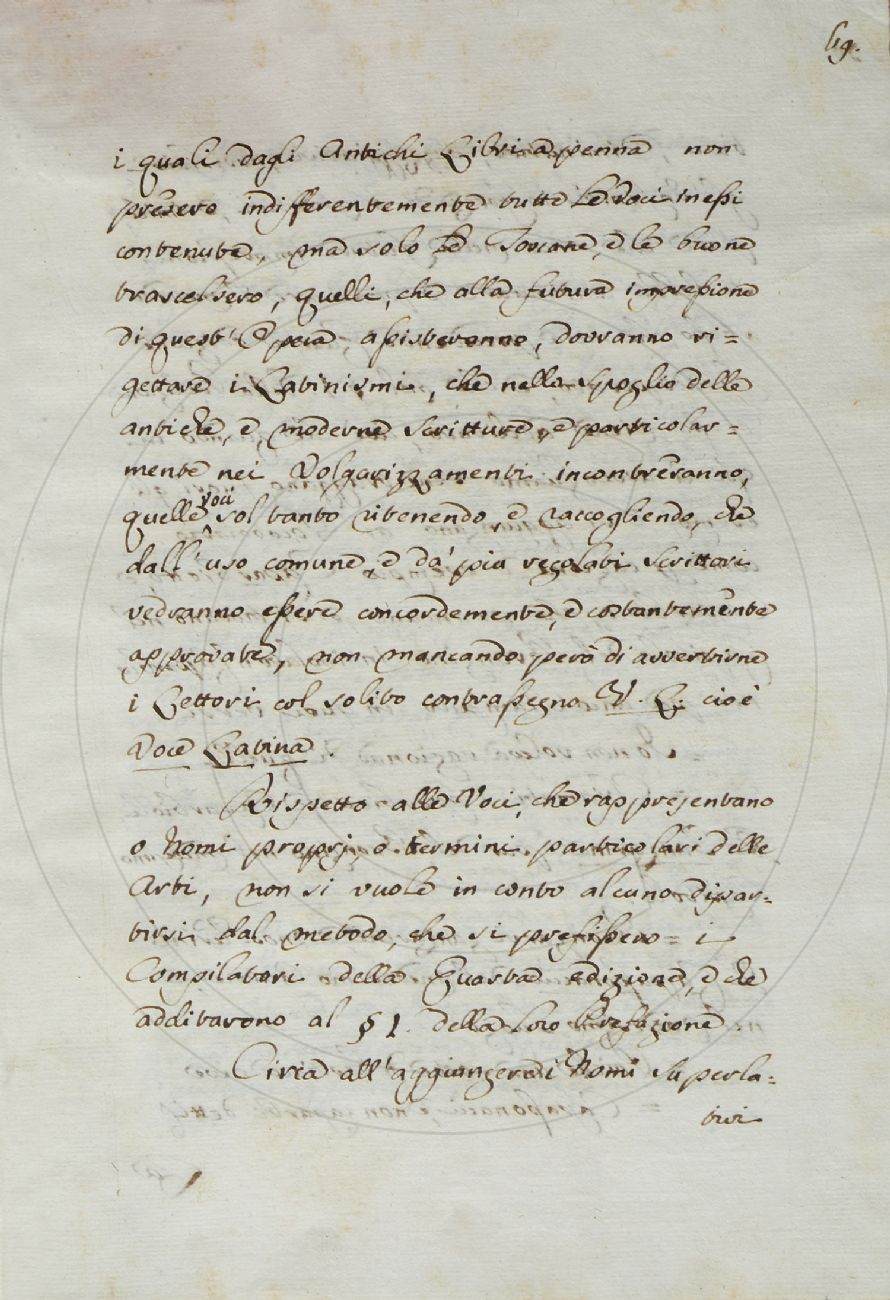 69.
i quali dagli Antichi Libri a penna non
presero indifferentemente tutte le Voci in essi
contenute, ma solo le Toscane, e le buone
trascelsero, quelli, che alla futura impressione
di quest' Opera assisteranno, dovranno ri=
gettare i Latinismi, che nello spoglio delle
antiche, e moderne scritture, e particolar=
mente nei Volgarizzamenti incontreranno,
quelle voci sol tanto ritenendo, e raccogliendo, che
dall' uso comune, e da' più regolati scrittori
vedranno essere concordemente, e costantemente
approvate, non mancando però di avvertirne
i Lettori col solito contrassegno V. L. cioè
Voce Latina.
Rispetto alle Voci, che rappresentano
o Nomi proprj, o termini particolari delle
Arti, non si vuole in conto alcuno dipar=
tirsi dal metodo, che si prefissero = i
Compilatori della Quarta edizione, e che
additarono al § 1. della loro Prefazione.
Circa all' aggiungere i Nomi Superla=
tivi